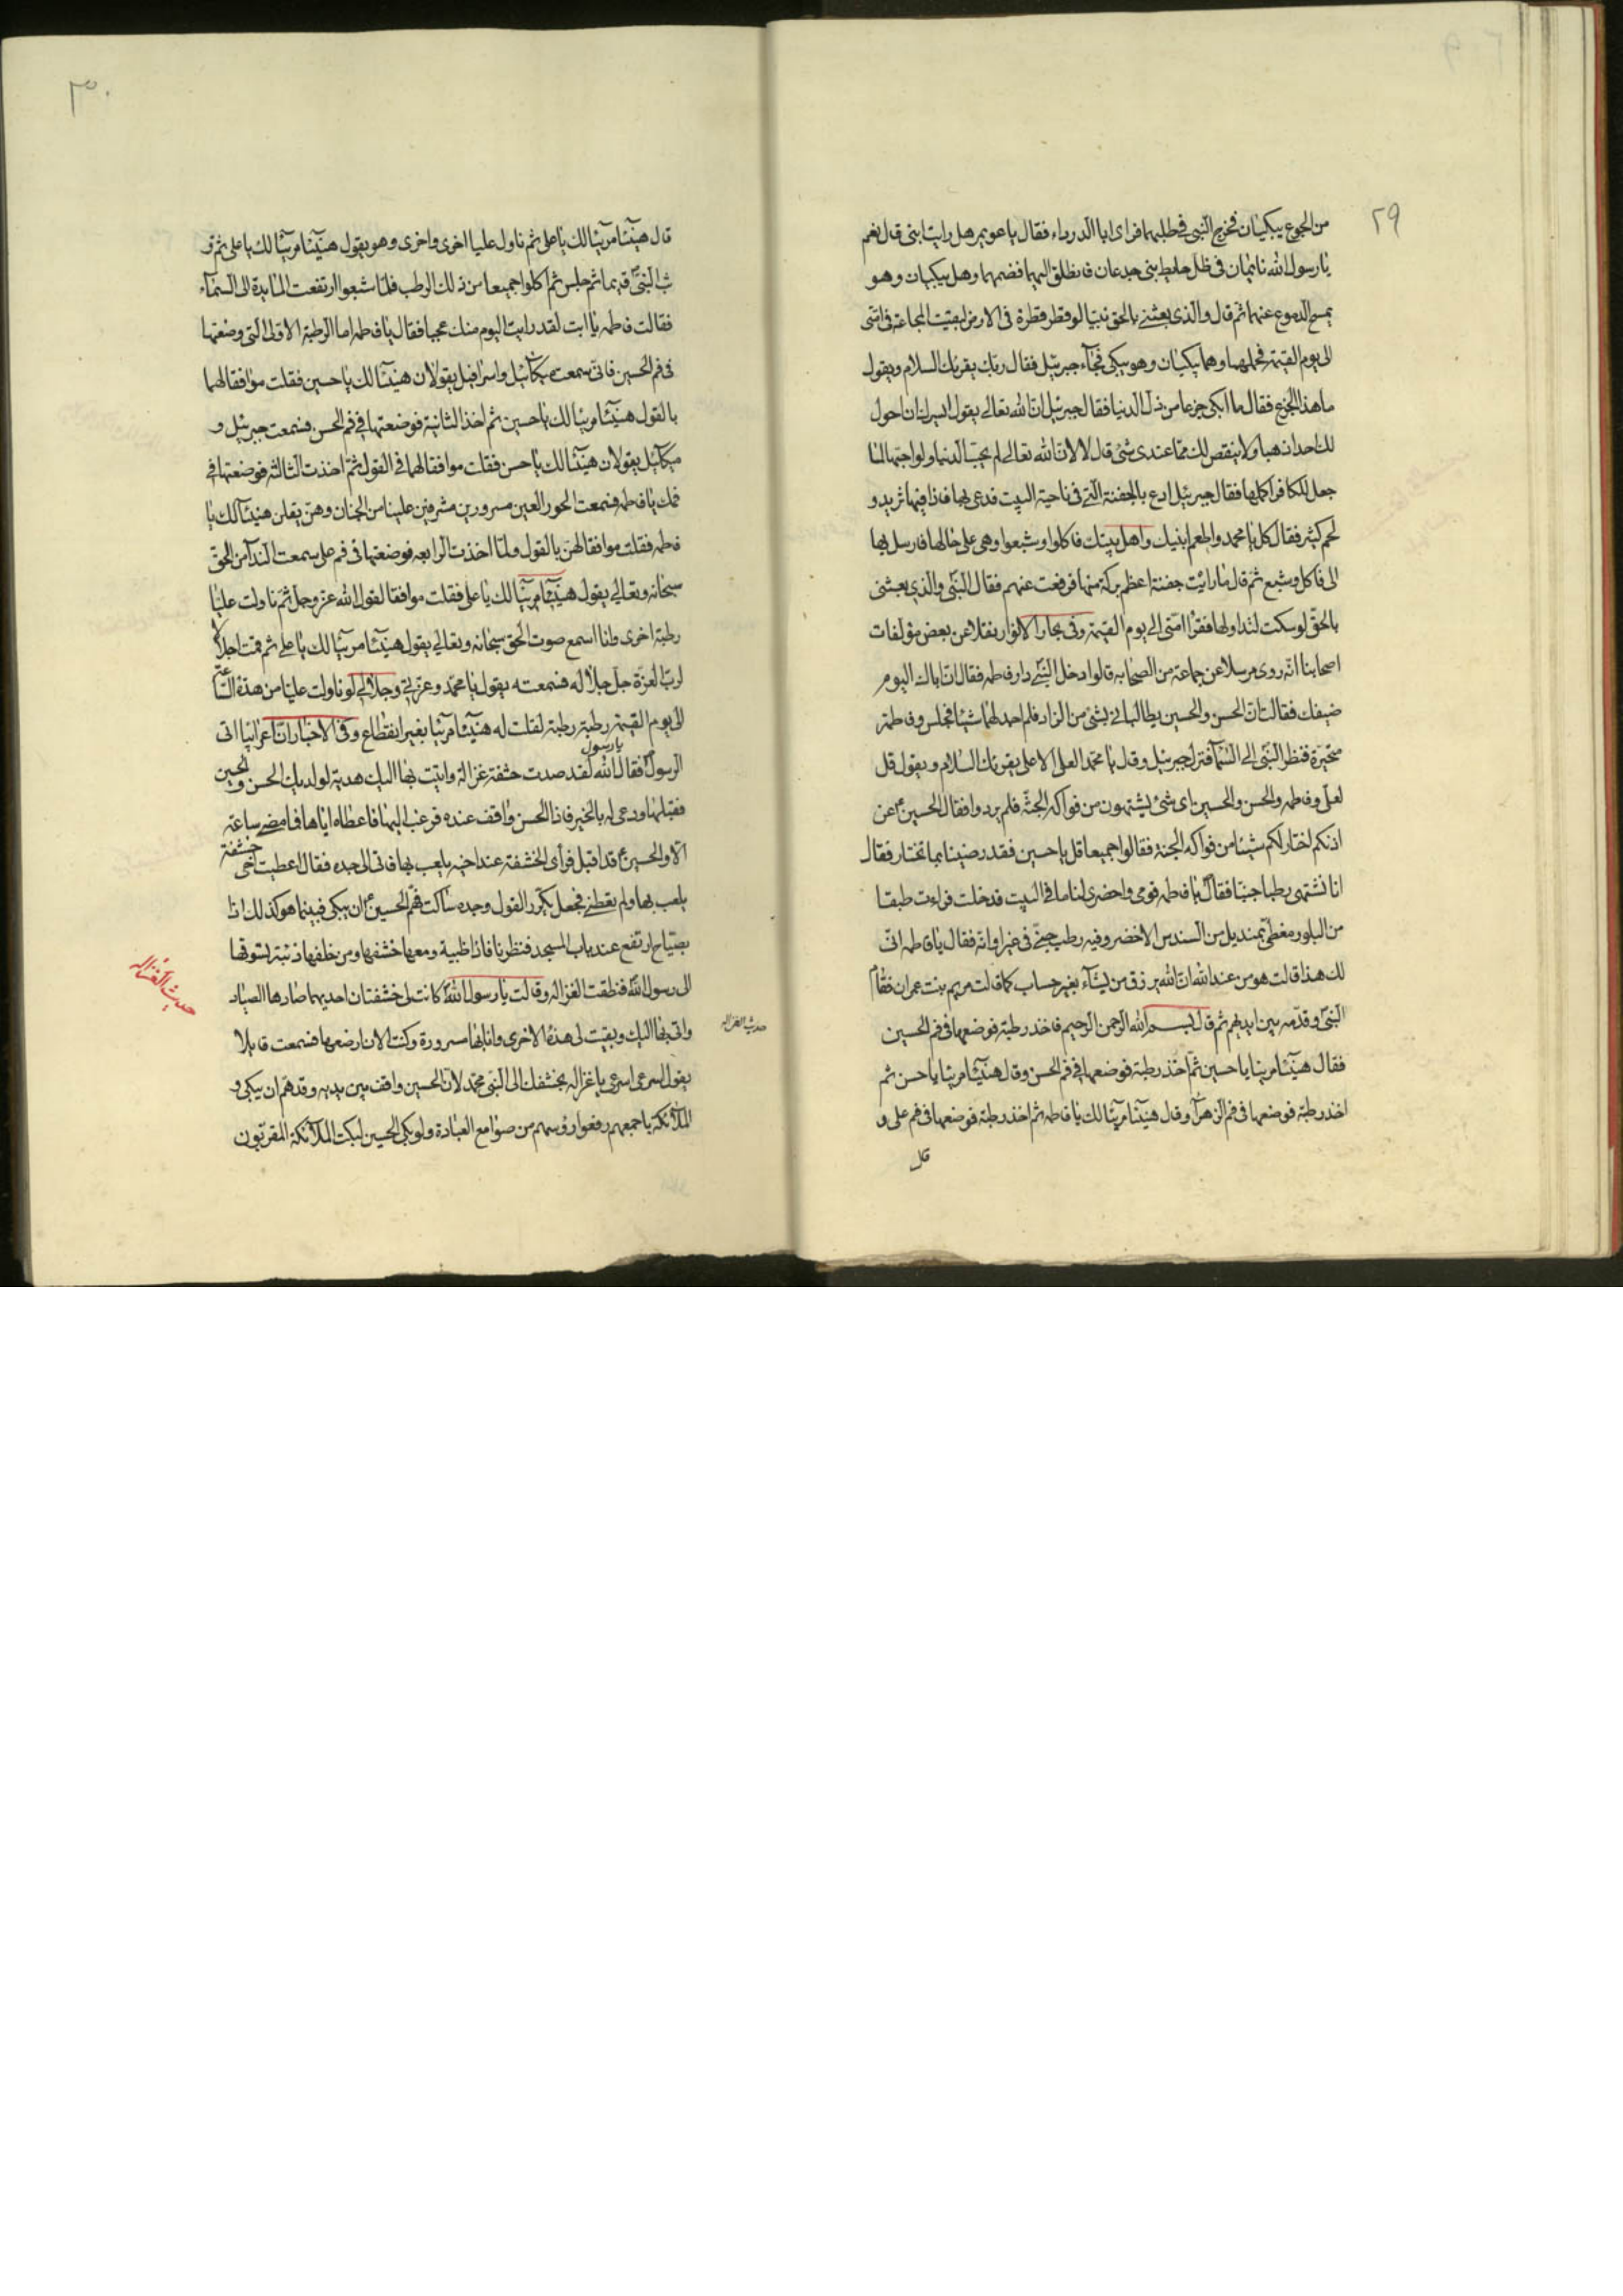 ٢٩
من الجوع يبكيان فخرج النبي في طلبهما فراى ابا الدرداء فقال يا عويمر هل رايت ابني قال نعم
يا رسول الله نايمان في ظل حايط بني جدعان فانطلق اليهما فضمهما وهل يبكيان وهو
يمسح الدموع عنهما ثم قال والذي بعثني بالحق نبيا لو قطر قطرة في الارض لبقيت المجاعة في امتي
الى يوم القيمة فحملهما وهما يبكيان وهو يبكي فجآء جبرئيل فقال ربك يقرئك السلام ويقول
ما هذا الجزع فقال ما ابكي جزعا من ذل الدنيا فقال جبرئيل ان الله تعالى يقول ايسرك ان احول
لك احدا ذهبا ولا ينقص لك مما عندي شئ قال لا لان الله تعالى لم يحب الدنيا ولو احبها لما
جعل للكافر اكلها فقال جبرئيل ادع بالجفنة التي في ناحية البيت فدعى بها فاذا فيها ثريد و
لحم كثير فقال كل يا محمد واطعم ابنيك واهل بيتك فاكلوا وشبعوا وهي على حالها فارسل بها
الى فاكل وشبع ثم قال ما رايت جفنة اعظم بركة منها فرفعت عنهم فقال النبي والذي بعثني
بالحق لو سكت لتداولها فقرآ امتي الى يوم القيمة وفي بحار الانوار نقلا عن بعض مؤلفات
اصحابنا انه روى مرسلا عن جماعة من الصحابه قالوا دخل النبي دار فاطمه فقال ان اباك اليوم
ضيفك فقالت ان الحسن والحسين يطالباني بشئ من الزاد فلم اجد لهما شيئا فجلس وفاطمة
متحيرة فنظر النبي الى السمآ فنزل جبرئيل وقال يا محمد العلي الاعلى يقرئك السلام ويقول قل
لعلي وفاطمه والحسن والحسين اى شئ يشتهون من فواكه الجنة فلم يردوا فقال الحسين ع عن
اذنكم اختار لكم شيئا من فواكه الجنة فقالوا جميعا قل يا حسين فقد رضينا بما تختار فقال
انا نشتهى رطبا جنيا فقال يا فاطمه قومي واحضري لنا ما في البيت فدخلت فراءت طبقا
من البلور مغطى بمنديل من السندس الاخضر وفيه رطب جني في غير اوانه فقال يا فاطمه انى
لك هذا قالت هو من عند الله ان الله يرزق من يشآء بغير حساب كما قالت مريم بنت عمران فقام
النبي وقدمه بين ايديهم ثم قال بسم الله الرحمن الرحيم فاخذ رطبة فوضعها في فم الحسين
فقال هنيئا مريئا يا حسين ثم اخذ رطبة فوضعها في فم الحسن وقال هنيئا مريئا يا حسن ثم
اخذ رطبة فوضعها في فم الزهرآ وقال هنيئا مريئا لك يا فاطمه ثم اخذ رطبة فوضعها في فم علي و
قال
٣٠
قال هنيئا مريئا لك يا علي ثم ناول عليا اخرى واخرى وهو يقول هنيئا مريئا لك يا علي ثم و
ثب النبي قايما ثم جلس ثم اكلوا جميعا من ذلك الرطب فلما شبعوا ارتفعت المائدة الى السمآء
فقالت فاطمه يا ابت لقد رايت اليوم منك عجبا فقال يا فاطمه اما الرطبة الاولى التي وضعتها
في فم الحسين فاني سمعت ميكائيل واسرافيل يقولان هنيئا لك يا حسين فقلت موافقا لهما
بالقول هنيئا مريئا لك يا حسين ثم اخذ الثانية فوضعتها في فم الحسن فسمعت جبرئيل و
ميكائيل يقولان هنيئا لك يا حسن فقلت موافقا لهما في القول ثم اخذت الثالثه فوضعتها في
فمك يا فاطمه فسمعت الحور العين مسرورين مشرفين علينا من الجنان وهن يقلن هنيئا لك يا
فاطمه فقلت موافقا لهن بالقول ولما اخذت الرابعه فوضعتها في فم علي سمعت الندآ من الحق
سبحانه وتعالى يقول هنيئا مريئا لك يا علي فقلت موافقا لقول الله عز وجل ثم ناولت عليا
رطبة اخرى وانا اسمع صوت الحق سبحانه وتعالى يقول هنيئا مريئا لك يا علي ثم قمت اجلالا
لرب العزة جل جلاله فسمعته يقول يا محمد وعزتي وجلالي لو ناولت عليا من هذه الساعة
الى يوم القيمة رطبة رطبة لقلت له هنيئا مريئا بغير انقطاع وفي الاخبار ان اعرابيا اتى
الرسول فقال يا رسول الله لقد صدت خشفة غزالة واتيت بها اليك هدية لولديك الحسن والحسين
فقبلها ودعى له بالخير فاذا الحسن واقف عنده فرغب اليها فاعطاه اياها فما مضى ساعة
الا والحسين ع قد اقبل فراى الخشفة عند اخيه يلعب بها فاتى الى جده فقال اعطيت اخي خشفة
يلعب بها ولم تعطني فجعل يكرر القول وجده ساكت فهم الحسين ع ان يبكي فبينما هو كذلك اذا
بصياح ارتفع عند باب المسجد فنظرنا فاذا ظبية ومعها خشفها ومن خلفها ذئبة تسوقها
الى رسول الله فنطقت الغزاله وقالت يا رسول الله كانت لي خشفتان احديهما صادها الصياد
واتى بها اليك وبقيت لي هذه الاخرى وانا بها مسرورة وكنت الان ارضعها فسمعت قايلا
يقول اسرعي اسرعي يا غزاله بخشفك الى النبي محمد لان الحسين واقف بين يديه وقد هم ان يبكي و
الملآئكة باجمعهم رفعوا رؤسهم من صوامع العبادة ولو بكى الحسين لبكت الملآئكة المقربون
حديث الغزاله
حديث الغزاله